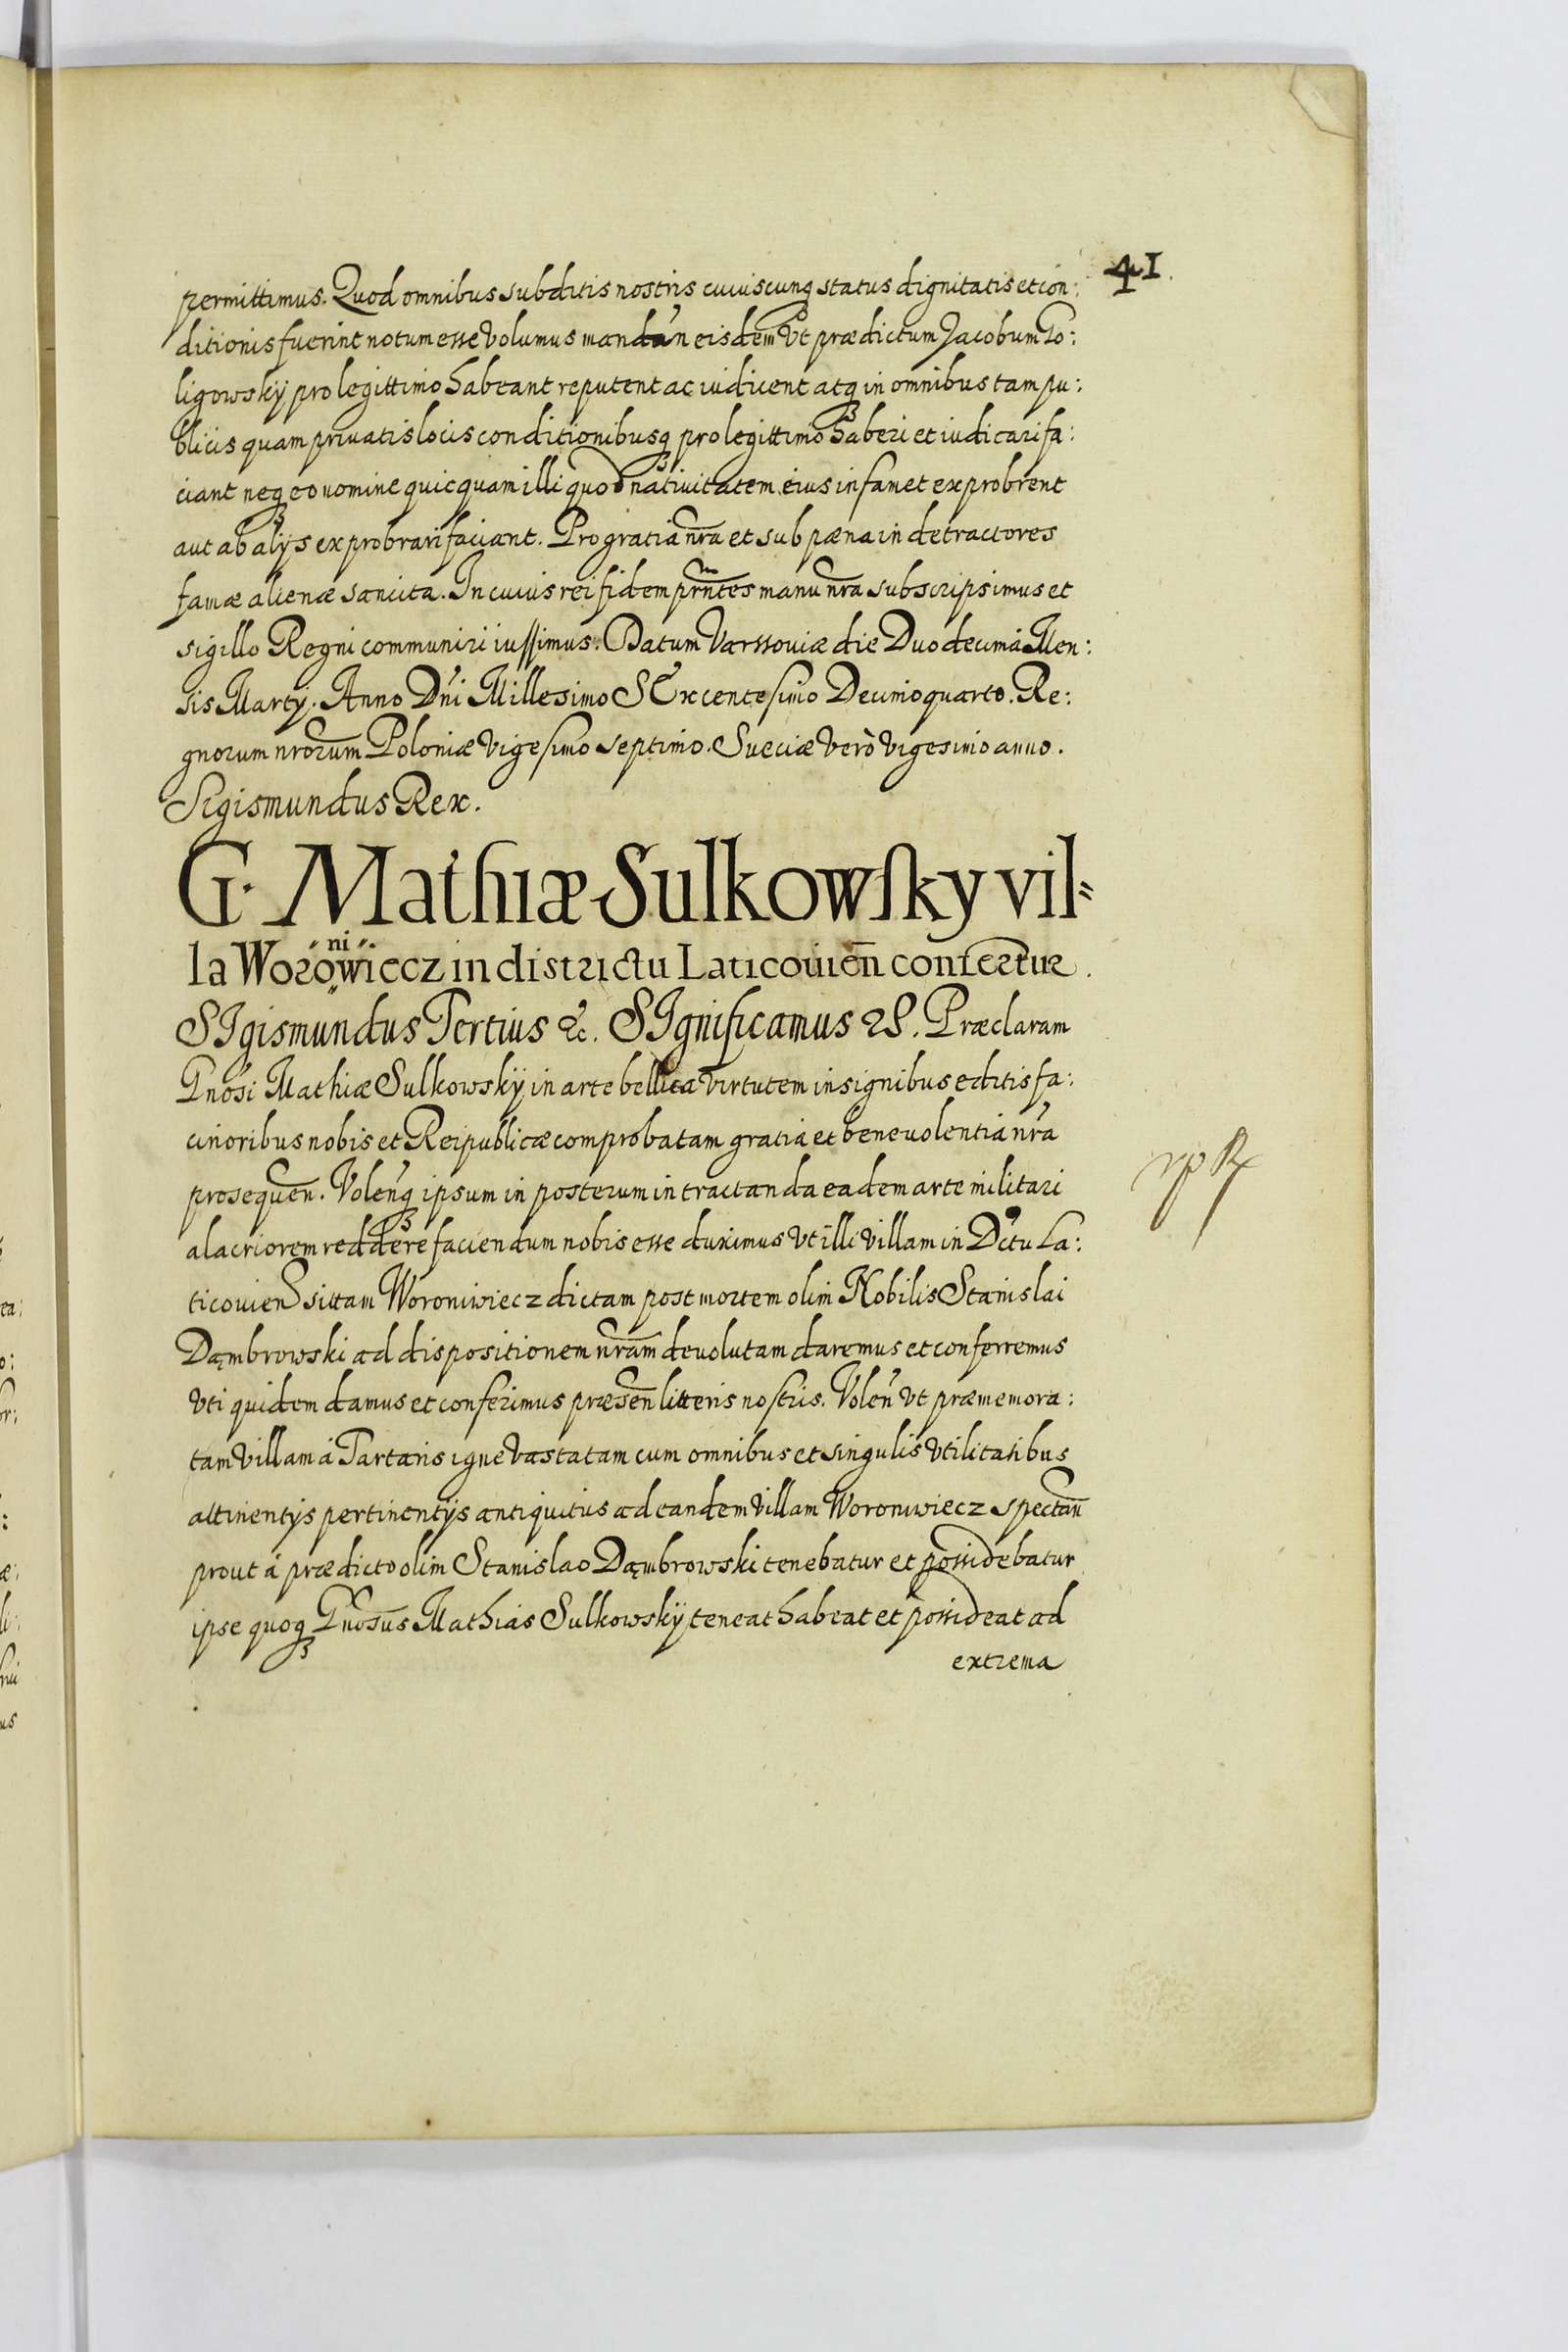 41.
permittimus. Quod omnibus subditis nostris cuiuscunq3 status dignitatis et con:
ditionis fuerint notum esse volumus mandan̄ eisdem vt prædictum Jacobum Go:
ligowskÿ pro legittimo habeant reputent ac iudicent atq3 in omnibus tam pu:
blicis quam priuatis locis conditionibusq3 pro legittimo haberi et iudicari fa:
ciant neq3 eo nomine quicquam illi quod natiuitatem eius infamet exprobrent
aut ab alÿs exprobrari faciant. Pro gratia nr̄a et sub pæna in detractores
famæ alienæ sancita. In cuius rei fidem prn̄tes manu nr̄a subscripsimus et
sigillo Regni communiri iussimus. Datum Varssouiæ die Duodecima Men:
sis Martÿ. Anno Dn̄i Millesimo SExcentesimo Decimo quarto. Re:
gnorum nrorum Poloniæ vigesimo septimo. Sueciæ verò vigesimo anno.
Sigismundus Rex.
G. Mathiæ Sulkowsky vil=
ni
la Worowiecz in districtu Laticouien̄ confertur.
SIgismundus Tertius &c. SIgnificamus &c. Præclaram
Gnosi Mathiæ Sulkowskÿ in arte bellica virtutem insignibus editis fa:
cinoribus nobis et Reipublicæ comprobatam gratia et beneuolentia nr̄a
prosequen̄. Volen̄q3 ipsum in posterum in tractanda eadem arte militari
alacriorem reddere faciendum nobis esse duximus vt illi villam in Dctu La:
ticouien sittam Woroniwiecz dictam post mortem olim Nobilis Stanislai
Dąmbrowski ad dispositionem nr̄am deuolutam daremus et conferremus
vti quidem damus et conferimus præsen̄ litteris nostris. Volen̄ vt præmemora:
tam villam à Tartaris igne vastatam cum omnibus et singulis vtilitatibus
attinentÿs pertinentÿs antiquitus ad eandem villam Woroniwiecz spectan̄
prout à prædicto olim Stanislao Dąmbrowski tenebatur et possidebatur
ipse quoq3 Gnosus Mathias Sulkowskÿ teneat habeat et possideat ad
extrema